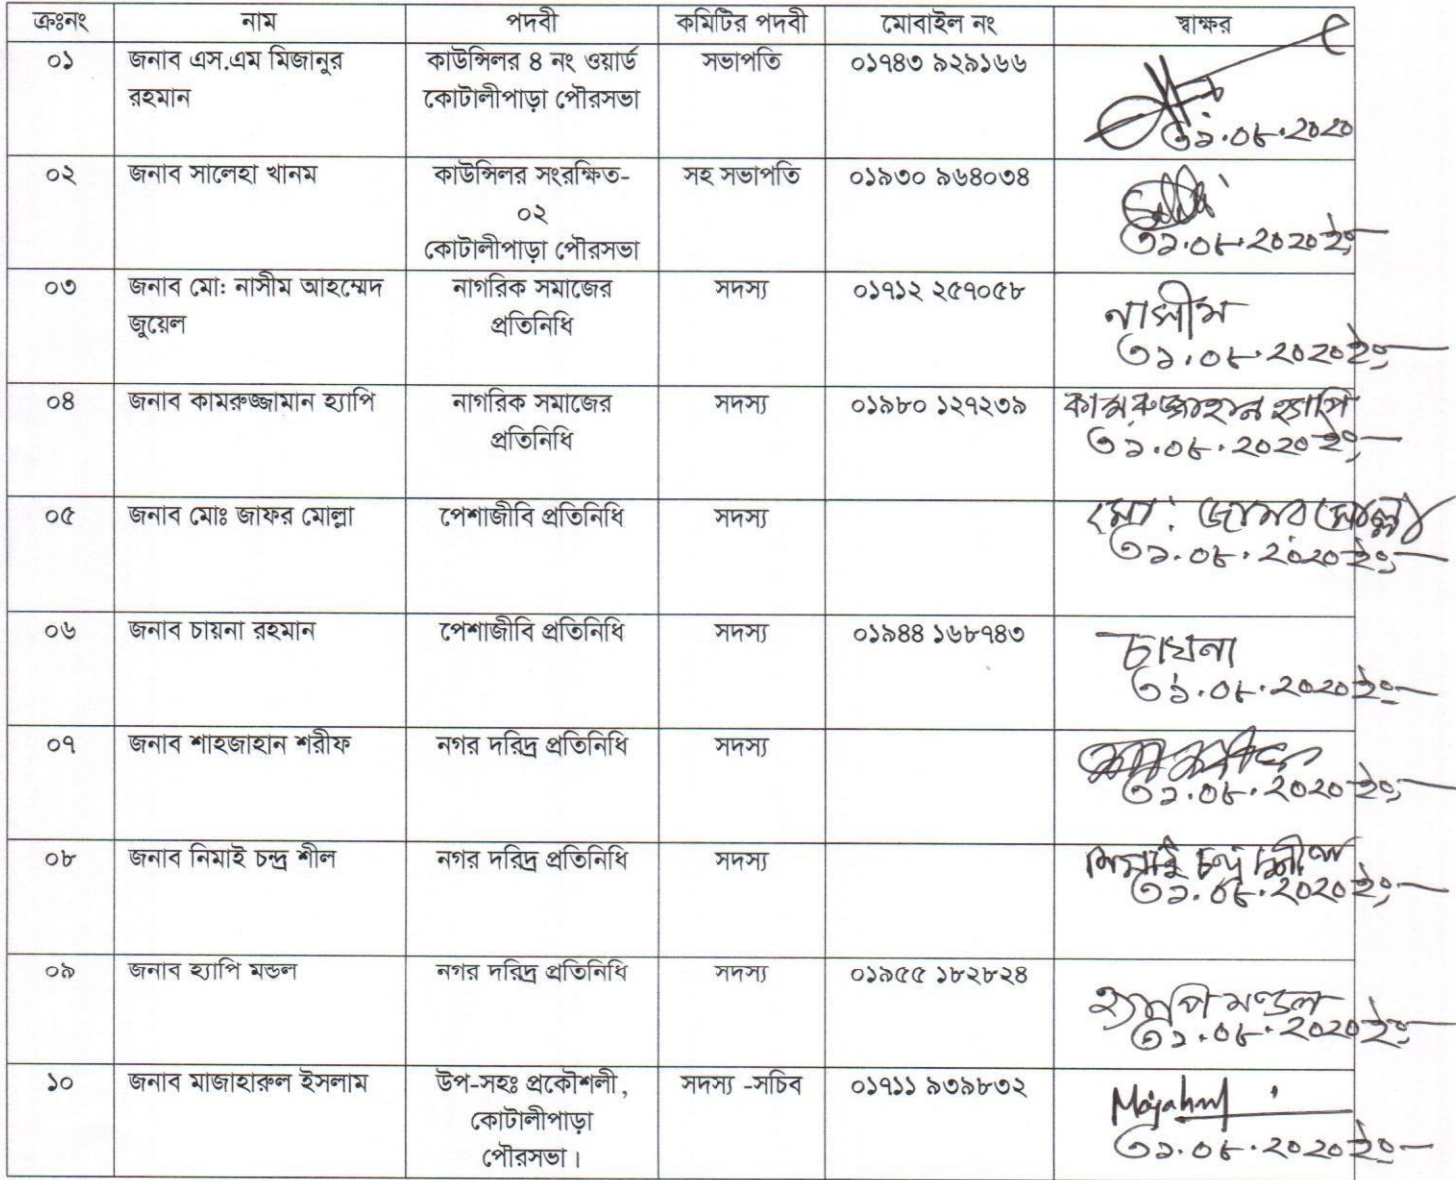 ক্রঃনং নাম পদবী কমিটির পদবী মোবাইল নং স্বাক্ষর
০১ জনাব এস.এম মিজানুর কাউন্সিলর ৪ নং ওয়ার্ড সভাপতি ০১৭৪৩ ৯২৯১৬৬
রহমান কোটালীপাড়া পৌরসভা
৩১.০৮.২০২০
০২ জনাব সালেহা খানম কাউন্সিলর সংরক্ষিত- সহ সভাপতি ০১৯৩০ ৯৬৪০৩৪
০২
কোটালীপাড়া পৌরসভা ৩১.০৮.২০২০ইং
০৩ জনাব মো: নাসীম আহম্মেদ নাগরিক সমাজের সদস্য ০১৭১২ ২৫৭০৫৮ নাসীম
জুয়েল প্রতিনিধি ৩১.০৮.২০২০ইং
০৪ জনাব কামরুজ্জামান হ্যাপি নাগরিক সমাজের সদস্য ০১৯৮০ ১২৭২৩৯ হ্যাপি
প্রতিনিধি ৩১.০৮.২০২০ইং
০৫ জনাব মোঃ জাফর মোল্লা পেশাজীবি প্রতিনিধি সদস্য মো: জাফর মোল্লা
৩১.০৮.২০২০ইং
০৬ জনাব চায়না রহমান পেশাজীবি প্রতিনিধি সদস্য ০১৯৪৪ ১৬৮৭৪৩ চায়না
৩১.০৮.২০২০ইং
০৭ জনাব শাহজাহান শরীফ নগর দরিদ্র প্রতিনিধি সদস্য
৩১.০৮.২০২০ইং
০৮ জনাব নিমাই চন্দ্র শীল নগর দরিদ্র প্রতিনিধি সদস্য নিমাই চন্দ্র শীল
৩১.০৮.২০২০ইং
০৯ জনাব হ্যাপি মন্ডল নগর দরিদ্র প্রতিনিধি সদস্য ০১৯৫৫ ১৮২৮২৪ হ্যাপি মণ্ডল
৩১.০৮.২০২০ইং
১০ জনাব মাজাহারুল ইসলাম উপ-সহঃ প্রকৌশলী, সদস্য -সচিব ০১৭১১ ৯৩৯৮৩২
কোটালীপাড়া
পৌরসভা। ৩১.০৮.২০২০ইং